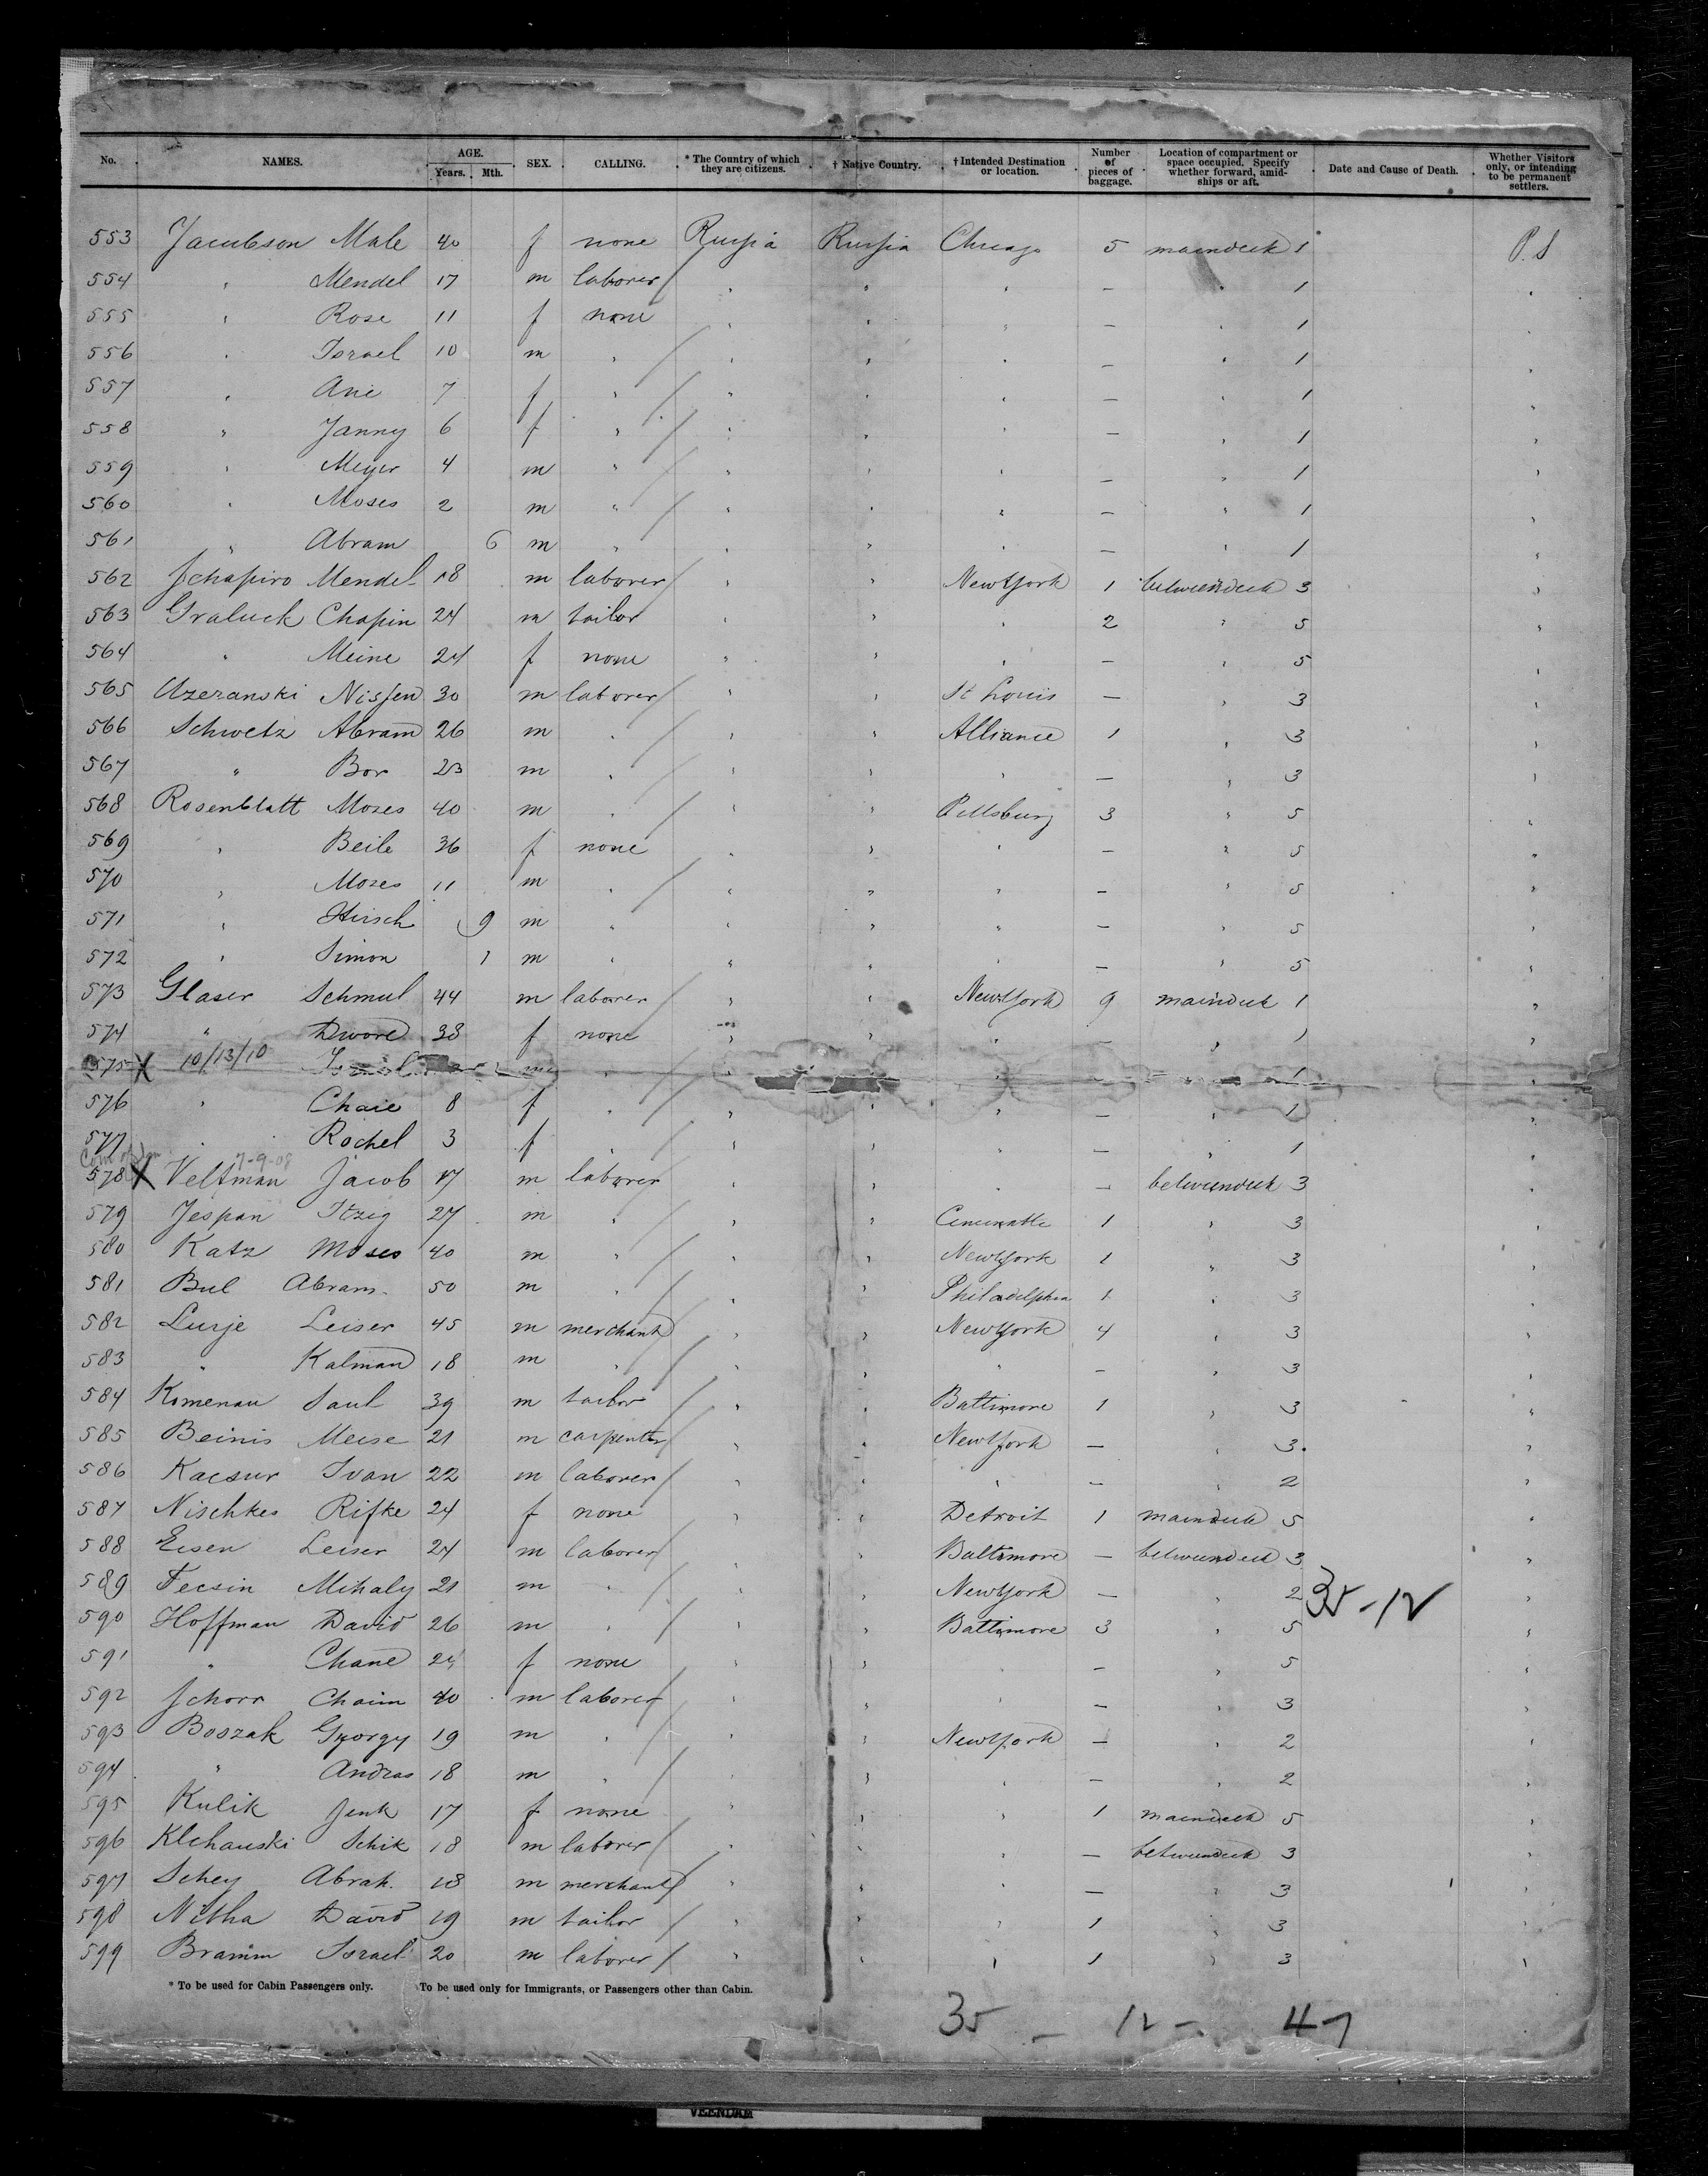 No. NAMES. AGE. Years. Mth. SEX. CALLING. * The Country of which they are citizens. † Native Country. † Intended Destination or location. Number of pieces of baggage. Location of compartment or space occupied. Specify whether forward, amidships or aft. Date and Cause of Death. Whether Visitors only, or intending to be permanent settlers.
553 Jacubson Male 40 f none Russia Russia Chicago 5 maindeck 1 P.S
554 " Mendel 17 m laborer " " " — " 1 "
555 " Rose 11 f none " " " — " 1 "
556 " Israel 10 m " " " " — " 1 "
557 " Ane 7 f " " " " — " 1 "
558 " Janny 6 f " " " " — " 1 "
559 " Meyer 4 m " " " " — " 1 "
560 " Moses 2 m " " " " — " 1 "
561 " Abram 6 m " " " " — " 1 "
562 Schapiro Mendel 18 m laborer " " New York 1 betweendeck 3 "
563 Graluck Chapin 24 m tailor " " " 2 " 5 "
564 " Meine 24 f none " " " — " 5 "
565 Uzeranski Nissen 30 m laborer " " St Louis — " 3 "
566 Schwetz Abram 26 m " " " Alliance 1 " 3 "
567 " Bor 23 m " " " " — " 3 "
568 Rosenblatt Moses 40 m " " " Pittsburg 3 " 5 "
569 " Beile 36 f none " " " — " 5 "
570 " Moses 11 m " " " " — " 5 "
571 " Hirsch 9 m " " " " — " 5 "
572 " Simon 1 m " " " " — " 5 "
573 Glaser Schmul 44 m laborer " " New York 9 maindeck 1 "
574 " Dwore 38 f none " " " — " 1 "
575 X 10/13/10 m " " " " — " 1 "
576 " Chaie 8 f " " " " — " 1 "
577 " Rochel 3 f " " " " — " 1 "
7-9-08
578 X Veltman Jacob 17 m laborer " " " — betweendeck 3 "
579 Jespan Itzig 27 m " " " 1 " 3 "
580 Katz Moses 40 m " " " New York 1 " 3 "
581 Bul Abram. 50 m " " " Philadelphia 1 " 3 "
582 Lurje Leiser 45 m merchant " " New York 4 " 3 "
583 " Kalman 18 m " " " " — " 3 "
584 Komenau Saul 39 m tailor " " Baltimore 1 " 3 "
585 Beinis Meise 21 m carpenter " " New York — " 3 "
586 Kacsur Ivan 22 m laborer " " " — " 2 "
587 Nischkes Rifke 24 f none " " Detroit 1 maindeck 5 "
588 Eisen Leiser 24 m laborer " " Baltimore — betweendeck 3 "
589 Fecsin Mihaly 21 m " " " New York — " 2 35-12 "
590 Hoffman David 26 m " " " Baltimore 3 " 5 "
591 " Chane 24 f none " " " — " 5 "
592 Schorr Chaim 40 m laborer " " " — " 3 "
593 Boszak Gyorgy 19 m " " " New York — " 2 "
594 " Andras 18 m " " " " — " 2 "
595 Kulik Jenk 17 f none " " " 1 maindeck 5 "
596 Klchauski Schik 18 m laborer " " " — betweendeck 3 "
597 Schey Abrah. 18 m merchant " " " — " 3 "
598 Nitha David 19 m tailor " " " 1 " 3 "
599 Bramm Israel 20 m laborer " " " 1 " 3 "
* To be used for Cabin Passengers only. To be used only for Immigrants, or Passengers other than Cabin.
35 - 12 - 47
VEENDAM